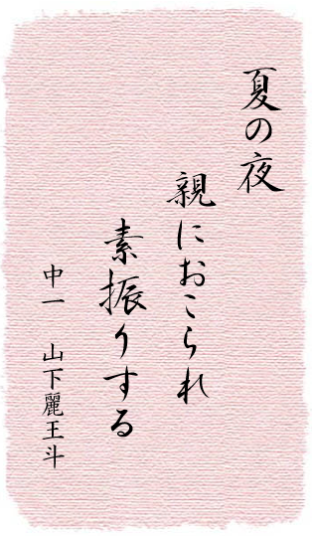 夏の夜
親におこられ
素振りする
中一　山下麗王斗